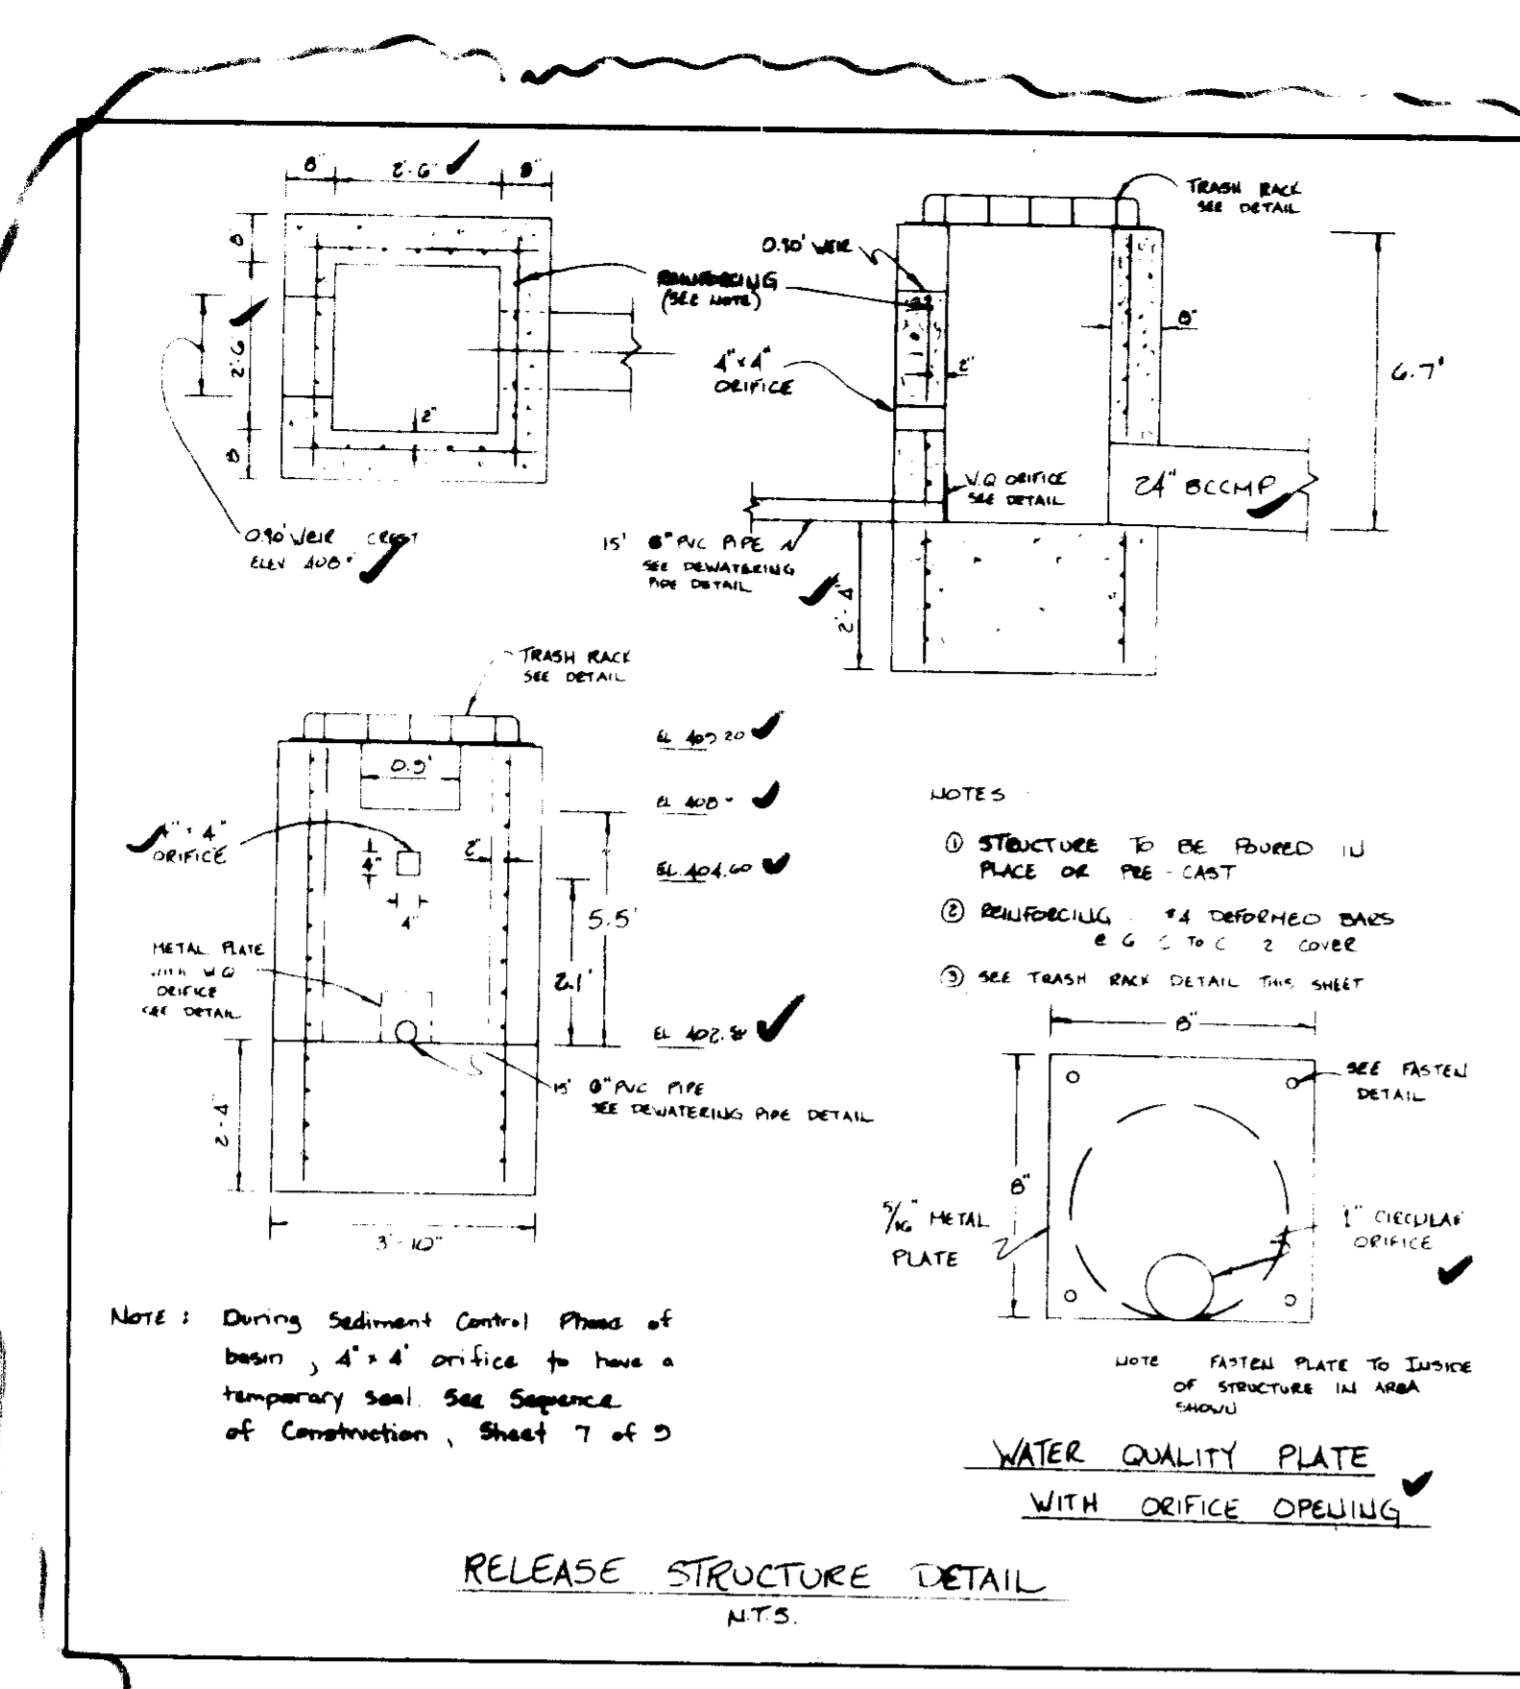 8"
2'-6"
8"
8
2'-6
8
2"
REINFORCING
(SEE NOTE)
0.90' WEIR CREST
ELEV 408
TRASH RACK
SEE DETAIL
0.90' WEIR
4"x4"
ORIFICE
2"
8"
6.7'
W.Q ORIFICE
SEE DETAIL
24" BCCMP
15' 8" PVC PIPE
SEE DEWATERING
PIPE DETAIL
2'-4"
TRASH RACK
SEE DETAIL
0.9'
4" x 4"
ORIFICE
4"
4"
2"
EL 409 20
EL 408
EL. 404.60
5.5'
2.1'
METAL PLATE
WITH W Q
ORIFICE
SEE DETAIL
EL 402.5
15' 8" PVC PIPE
SEE DEWATERING PIPE DETAIL
2'-4"
3'-10"
NOTES
① STRUCTURE TO BE POURED IN
PLACE OR PRE-CAST
② REINFORCING #4 DEFORMED BARS
@ 6 C TO C 2 COVER
③ SEE TRASH RACK DETAIL THIS SHEET
8"
8"
SEE FASTEN
DETAIL
5/16" METAL
PLATE
1" CIRCULAR
ORIFICE
NOTE FASTEN PLATE TO INSIDE
OF STRUCTURE IN AREA
SHOWN
WATER QUALITY PLATE
WITH ORIFICE OPENING
NOTE : During Sediment Control Phase of
basin, 4" x 4" orifice to have a
temporary seal. See Sequence
of Construction, Sheet 7 of 9
RELEASE STRUCTURE DETAIL
N.T.S.